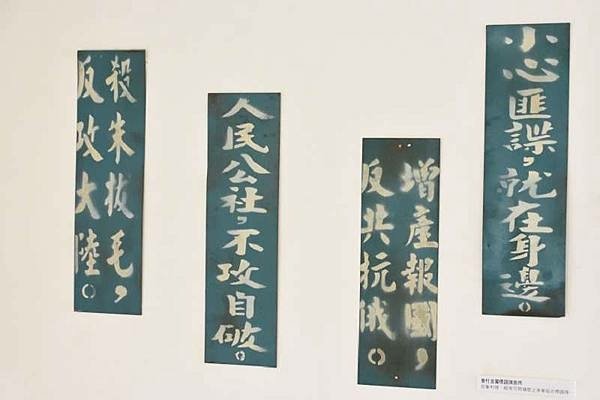 殺朱拔毛，
反攻大陸。
人民公社，不攻自破。
增產報國，
反共抗俄。
小心匪諜，就在身邊。